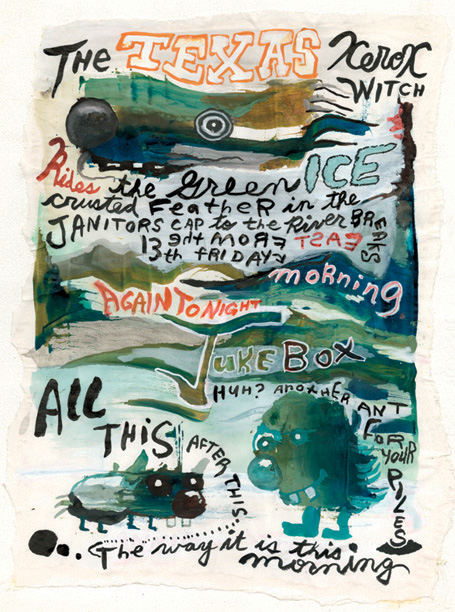 THE TEXAS XeroX
WITCH
Rides the Green ICE
crusted FeatheR in the
JANITORS CAP to the RiveR BREAKS
EAST FROM the 13
13th FRIDAY
morning
AGAIN TONIGHT
JUKE BOX
HUH? ANOTHER ANT FOR YOUR PILES
ALL
THIS
AFTER THIS
The way it is this
morning